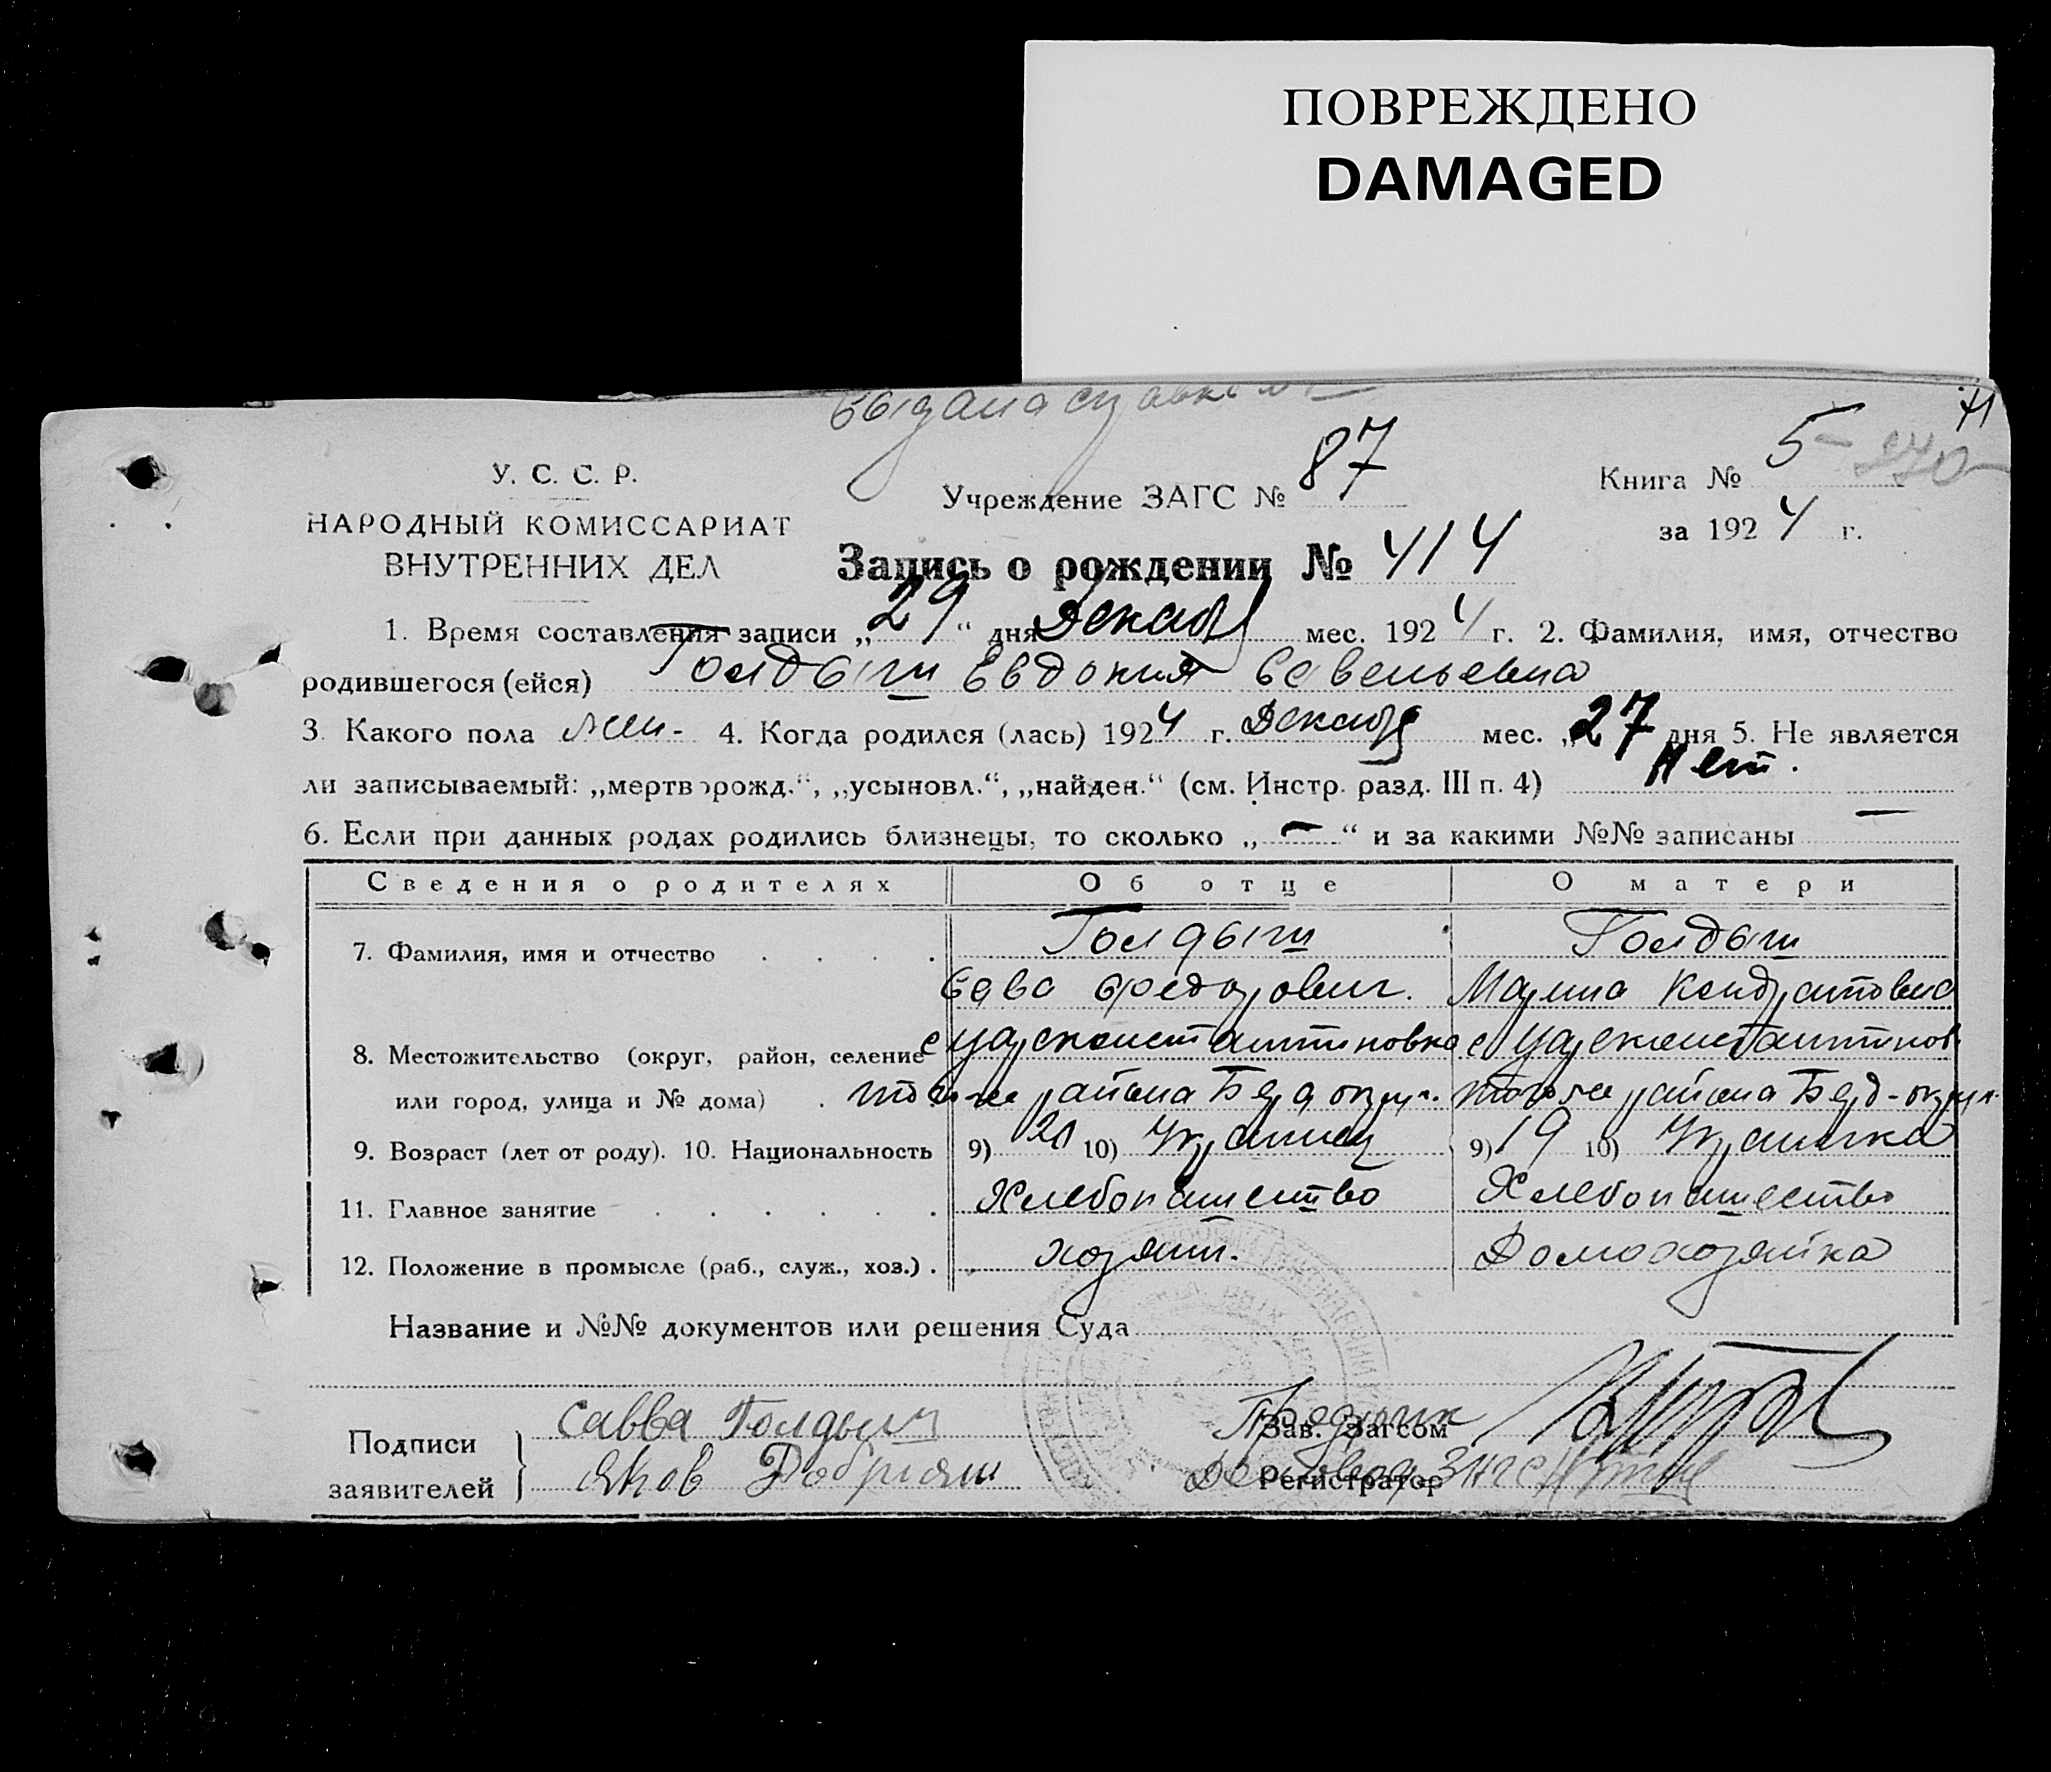 ПОВРЕЖДЕНО
DAMAGED
71
Выдана справка
У. С. С. Р.
НАРОДНЫЙ КОМИССАРИАТ
ВНУТРЕННИХ ДЕЛ
Учреждение ЗАГС № 87
Книга № 5
за 1924 г.
Запись о рождении № 414
1. Время составления записи „29“ дня Декабр мес. 1924 г. 2. Фамилия, имя, отчество
родившегося (ейся) Голдыш Евдокия Савельевна
3. Какого пола жен. 4. Когда родился (лась) 1924 г. Декабр мес. „27 дня 5. Не является
ли записываемый: „мертворожд.“, „усыновл.“, „найден.“ (см. Инстр. разд. III п. 4) Нет.
6. Если при данных родах родились близнецы, то сколько „—“ и за какими №№ записаны —
Сведения о родителях Об отце О матери
7. Фамилия, имя и отчество Голдыш Голдыш
Сава Федорович. Марина Кондратовна
8. Местожительство (округ, район, селение с Царсконстантиновка с Царсконстантинов.
или город, улица и № дома) того же района Берд округ. того же района Берд-округ.
9. Возраст (лет от роду). 10. Национальность 9) 20 10) Украинец 9) 19 10) Украинка
11. Главное занятие Хлебопашество Хлебопашество
12. Положение в промысле (раб., служ., хоз.) хозяин. Домохозяйка
Название и №№ документов или решения Суда
Подписи
заявителей
Савва Голдыш
Яков Добрияш
Зав. Загсом
Регистратор